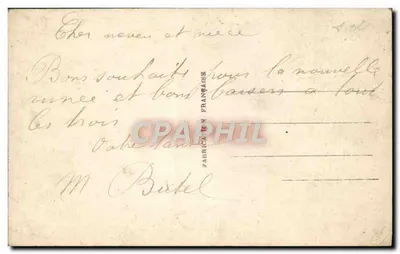 Cher neveu et nièce
Bons souhaits pour la nouvelle
année et bons baisers a tout
les trois
Votre
M Bertel
FABRICATION FRANÇAISE
CPARPHIL